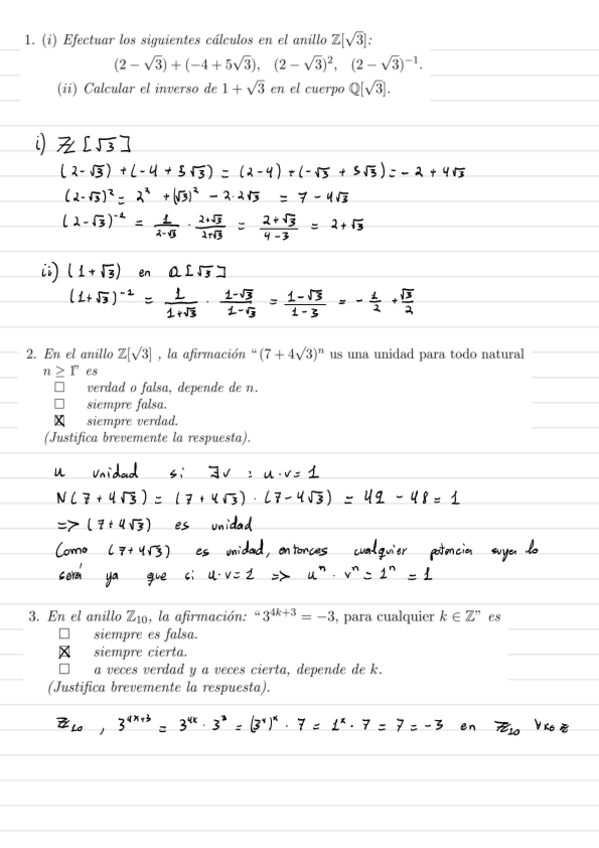 1. (i) Efectuar los siguientes cálculos en el anillo ℤ[√3]:
(2 − √3) + (−4 + 5√3), (2 − √3)², (2 − √3)⁻¹.
(ii) Calcular el inverso de 1 + √3 en el cuerpo ℚ[√3].
i) ℤ[√3]
(2-√3) + (-4 + 5√3) = (2-4) + (-√3 + 5√3) = -2 + 4√3
(2-√3)² = 2² + (√3)² - 2·2√3 = 7 - 4√3
(2-√3)⁻¹ = 1/(2-√3) · (2+√3)/(2+√3) = (2+√3)/(4-3) = 2+√3
ii) (1+√3) en ℚ[√3]
(1+√3)⁻¹ = 1/(1+√3) · (1-√3)/(1-√3) = (1-√3)/(1-3) = - 1/2 + √3/2
2. En el anillo ℤ[√3] , la afirmación “(7 + 4√3)ⁿ us una unidad para todo natural
n ≥ 1” es
☐ verdad o falsa, depende de n.
☐ siempre falsa.
☒ siempre verdad.
(Justifica brevemente la respuesta).
u unidad si ∃v : u·v = 1
N(7 + 4√3) = (7 + 4√3) · (7 - 4√3) = 49 - 48 = 1
=> (7+4√3) es unidad
Como (7+4√3) es unidad, entonces cualquier potencia suya lo
será ya que si u·v=1 => uⁿ · vⁿ = 1ⁿ = 1
3. En el anillo ℤ₁₀, la afirmación: “3⁴ᵏ⁺³ = −3, para cualquier k ∈ ℤ” es
☐ siempre es falsa.
☒ siempre cierta.
☐ a veces verdad y a veces cierta, depende de k.
(Justifica brevemente la respuesta).
ℤ₁₀ , 3⁴ᵏ⁺³ = 3⁴ᵏ · 3³ = (3⁴)ᵏ · 7 = 1ᵏ · 7 = 7 = -3 en ℤ₁₀ ∀k∈ℤ